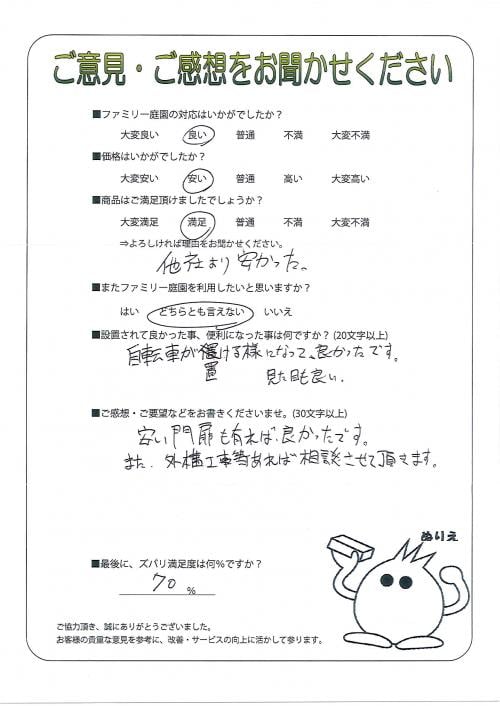 ご意見・ご感想をお聞かせください
■ファミリー庭園の対応はいかがでしたか？
大変良い 良い 普通 不満 大変不満
■価格はいかがでしたか？
大変安い 安い 普通 高い 大変高い
■商品はご満足頂けましたでしょうか？
大変満足 満足 普通 不満 大変不満
⇒よろしければ理由をお聞かせください。
他社より安かった。
■またファミリー庭園を利用したいと思いますか？
はい どちらとも言えない いいえ
■設置されて良かった事、便利になった事は何ですか？(20文字以上)
自転車が置ける様になって、良かったです。
置 見た目も良い。
■ご感想・ご要望などをお書きくださいませ。(30文字以上)
安い門扉も有れば良かったです。
また、外構工事等あれば相談させて頂きます。
ぬりえ
■最後に、ズバリ満足度は何％ですか？
70 ％
ご協力頂き、誠にありがとうございました。
お客様の貴重な意見を参考に、改善・サービスの向上に活かして参ります。